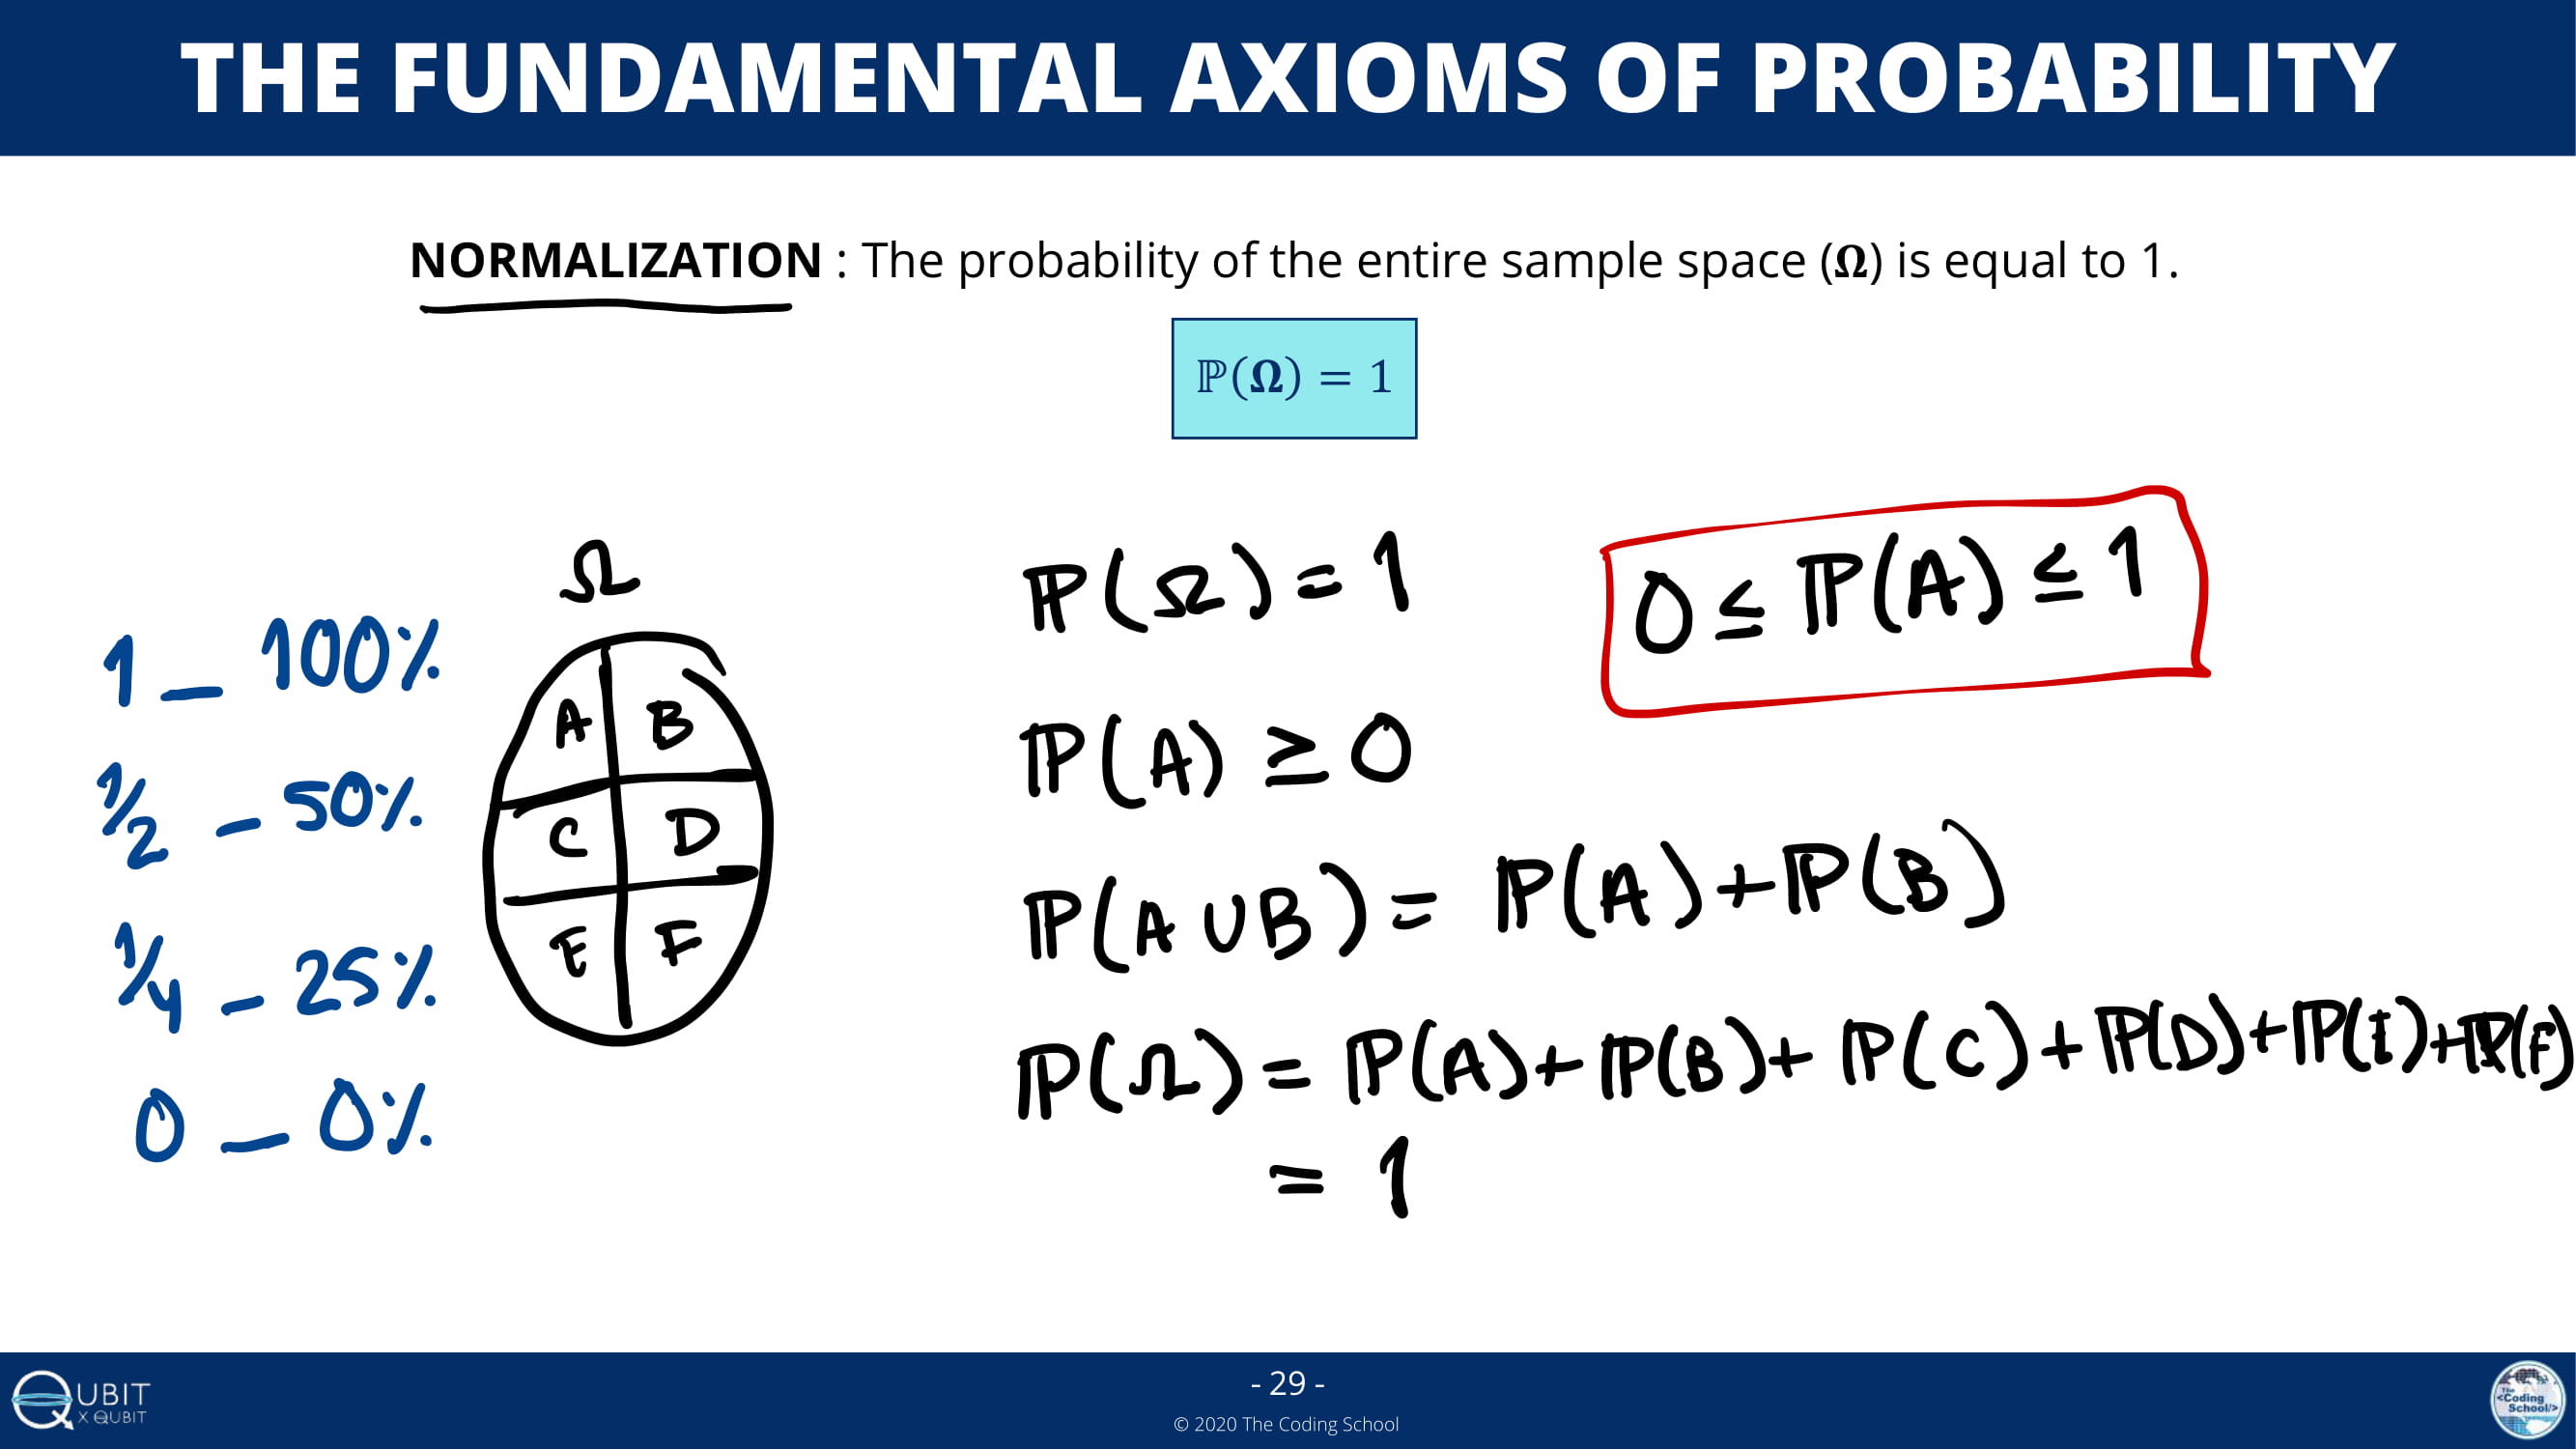 THE FUNDAMENTAL AXIOMS OF PROBABILITY
NORMALIZATION : The probability of the entire sample space (Ω) is equal to 1.
ℙ(Ω) = 1
Ω
1 – 100%
1/2 – 50%
1/4 – 25%
0 – 0%
A B
C D
E F
ℙ(Ω) = 1
0 ≤ ℙ(A) ≤ 1
ℙ(A) ≥ 0
ℙ(A ∪ B) = ℙ(A) + ℙ(B)
ℙ(Ω) = ℙ(A) + ℙ(B) + ℙ(C) + ℙ(D) + ℙ(E) + ℙ(F)
= 1
QUBIT
X QUBIT
- 29 -
© 2020 The Coding School
The
<Coding
School/>